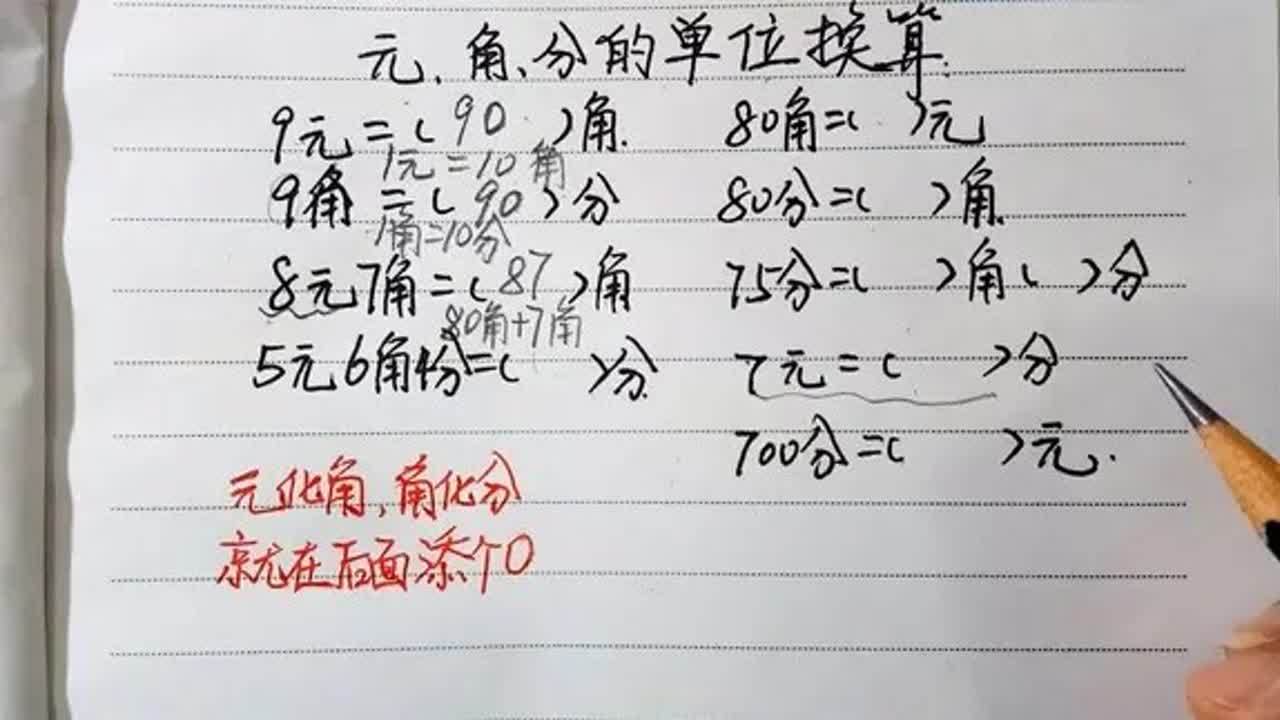 元、角、分的单位换算
9元=( 90 )角. 80角=( )元
1元=10角
9角=( 90 )分 80分=( )角.
1角=10分
8元7角=( 87 )角 75分=( )角( )分
80角+7角
5元6角4分=( )分. 7元=( )分
700分=( )元.
元化角,角化分
就在后面添个0